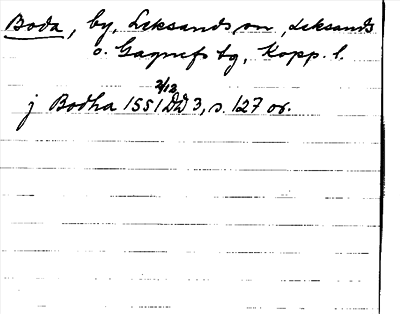 Boda, by, Leksands sn, Leksands
o. Gagnefs tg, Kopp. l.
2/12
j Bodha 1551 DD 3, s. 127 or.